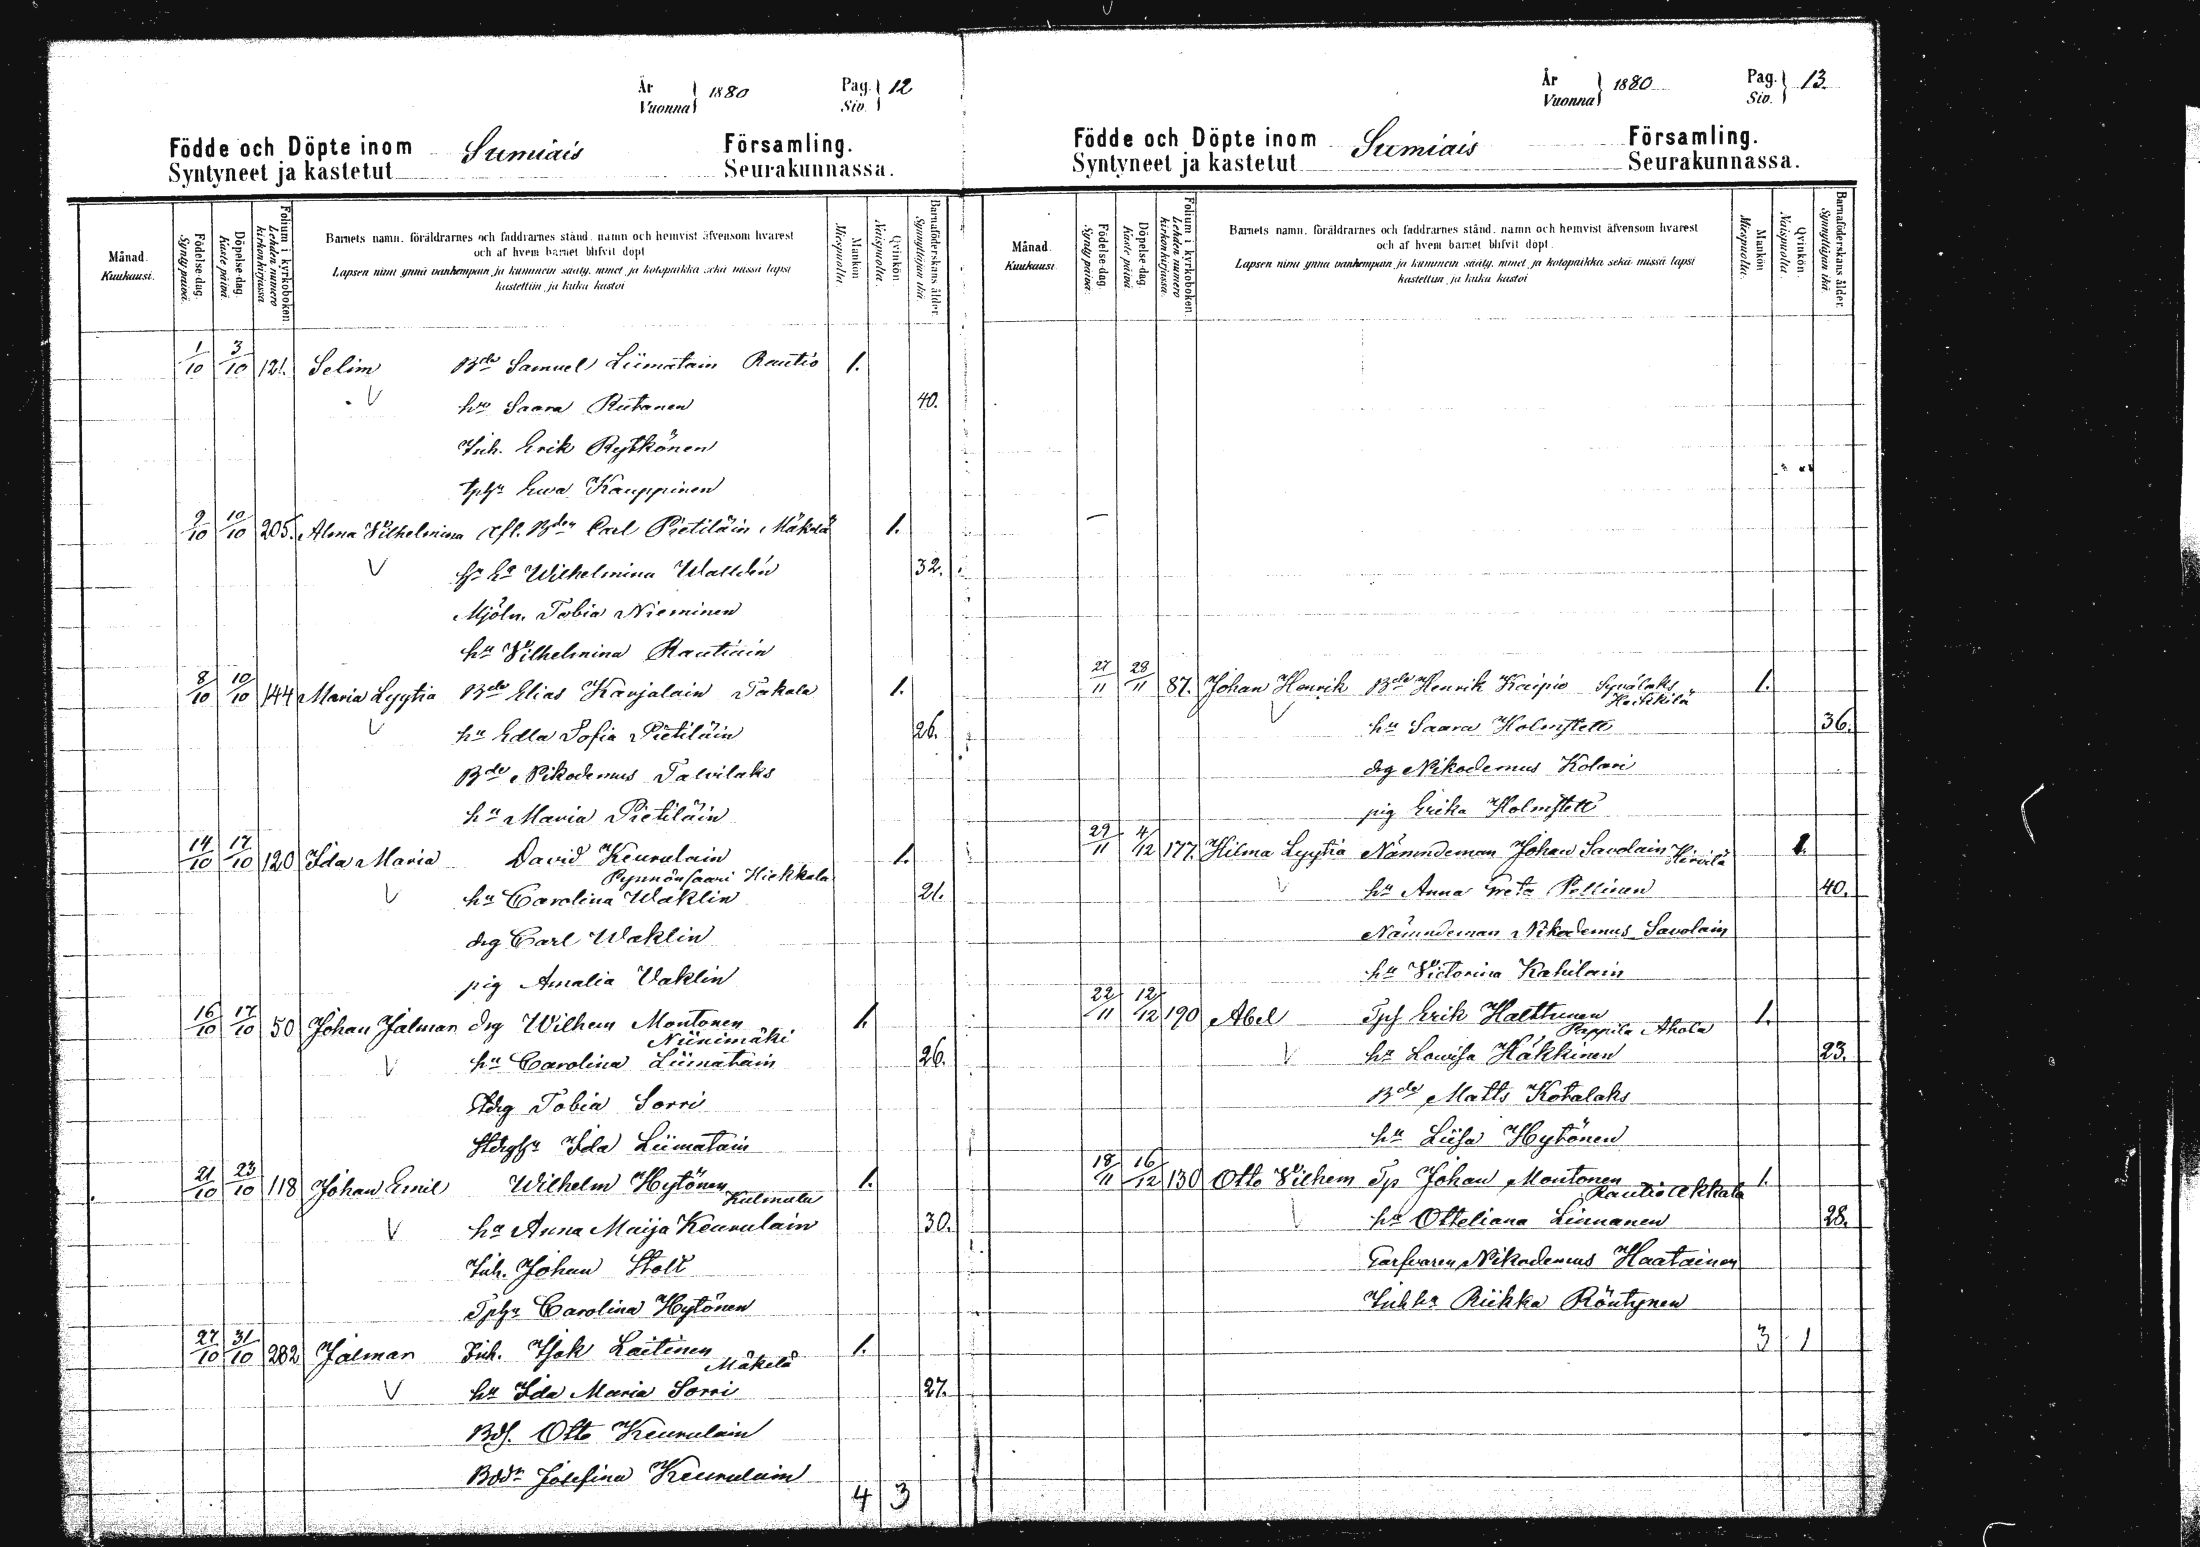 År Vuonna 1880 Pag. Siv. 12
Födde och Döpte inom Sumiais Församling.
Syntyneet ja kastetut Seurakunnassa.
Månad. Kuukausi.
Födelse-dag. Synty päivä.
Döpelse-dag. Kaste päivä.
Folium i kyrkoboken. Lehden numero kirkonkirjassa.
Barnets namn, föräldrarnes och faddrarnes stånd, namn och hemvist äfvensom hvarest
och af hvem barnet blifvit döpt
Lapsen nimi ynnä vanhempain ja kummein sääty, nimet ja kotopaikka sekä missä lapsi
kastettiin ja kuka kastoi
Mankön Miespuolta.
Qvinkön Naispuolta.
Barnaföderskans ålder. Synnyttäjän ikä.
1/10 3/10 121. Selim Bde Samuel Liimatain Rautio 1.
V hu Saara Riitanen 40.
Inh. Erik Rytkönen
Tphu Ewa Kauppinen
9/10 10/10 205. Alma Wilhelmina Afl. Bden Carl Pietiläin Mäkelä 1.
V Wilhelmina Walldén 32.
Mjöln. Tobia Nieminen
hu Wilhelmina Rautiain
8/10 10/10 144 Maria Lyytia Bde Elias Karjalain Takala 1.
V hu Edla Sofia Pietiläin 26.
Bde Nikodemus Talvilaks
hu Maria Pietiläin
14/10 17/10 120 Ida Maria David Keurulain 1.
Pynnönsaari Hiekkala
V hu Carolina Waklin 21.
drg Carl Waklin
pig Amalia Vaklin
16/10 17/10 50 Johan Jalmar drg Wilhem Montonen 1.
Niinimäki
V hu Carolina Liimatain 26.
Stdrg Tobia Sorri
Stdrghu Ida Liimatain
21/10 23/10 118 Johan Emil Wilhelm Hytönen 1.
Kulmala
V hu Anna Maija Keurulain 30.
Inh. Johan Stolt
Tphu Carolina Hytönen
27/10 31/10 282 Jalmar Inh. Isak Laitinen 1.
Mäkelä
V hu Ida Maria Sorri 27.
Bds. Otto Keurulain
Bddr Josefina Keurulain
4 3
År Vuonna 1880 Pag. Siv. 13.
Födde och Döpte inom Sumiais Församling.
Syntyneet ja kastetut Seurakunnassa.
Månad. Kuukausi.
Födelse-dag. Synty päivä.
Döpelse-dag. Kaste päivä.
Folium i kyrkoboken. Lehden numero kirkonkirjassa.
Barnets namn, föräldrarnes och faddrarnes stånd, namn och hemvist äfvensom hvarest
och af hvem barnet blifvit döpt.
Lapsen nimi ynnä vanhempain ja kummein sääty, nimet ja kotopaikka sekä missä lapsi
kastettiin ja kuka kastoi
Mankön Miespuolta.
Qvinkön. Naispuolta.
Barnaföderskans ålder. Synnyttäjän ikä.
27/11 28/11 87. Johan Henrik Bde Henrik Kaipio Syvälaks 1.
Heikkilä
V hu Saara Holmstett 36.
drg Nikodemus Kolari
pig Erika Holmstett
29/11 4/12 177. Hilma Lyytia Nämndeman Johan Savolain Hirvilä 1.
V hu Anna Greta Pellinen 40.
Nämndeman Nikodemus Savolain
hu Victorina Kahilain
22/11 12/12 190 Abel Tps Erik Halttunen 1.
Pappila Ahola
V hu Lowisa Häkkinen 23.
Bde Matts Kotalaks
hu Liisa Hytönen
18/11 16/12 130 Otto Vilhem Tp Johan Montonen 1.
Rautio Akkala
V hu Otteliana Linnanen 28.
Garfvaren Nikodemus Haatainen
Inhhu Riikka Röntynen
3 1